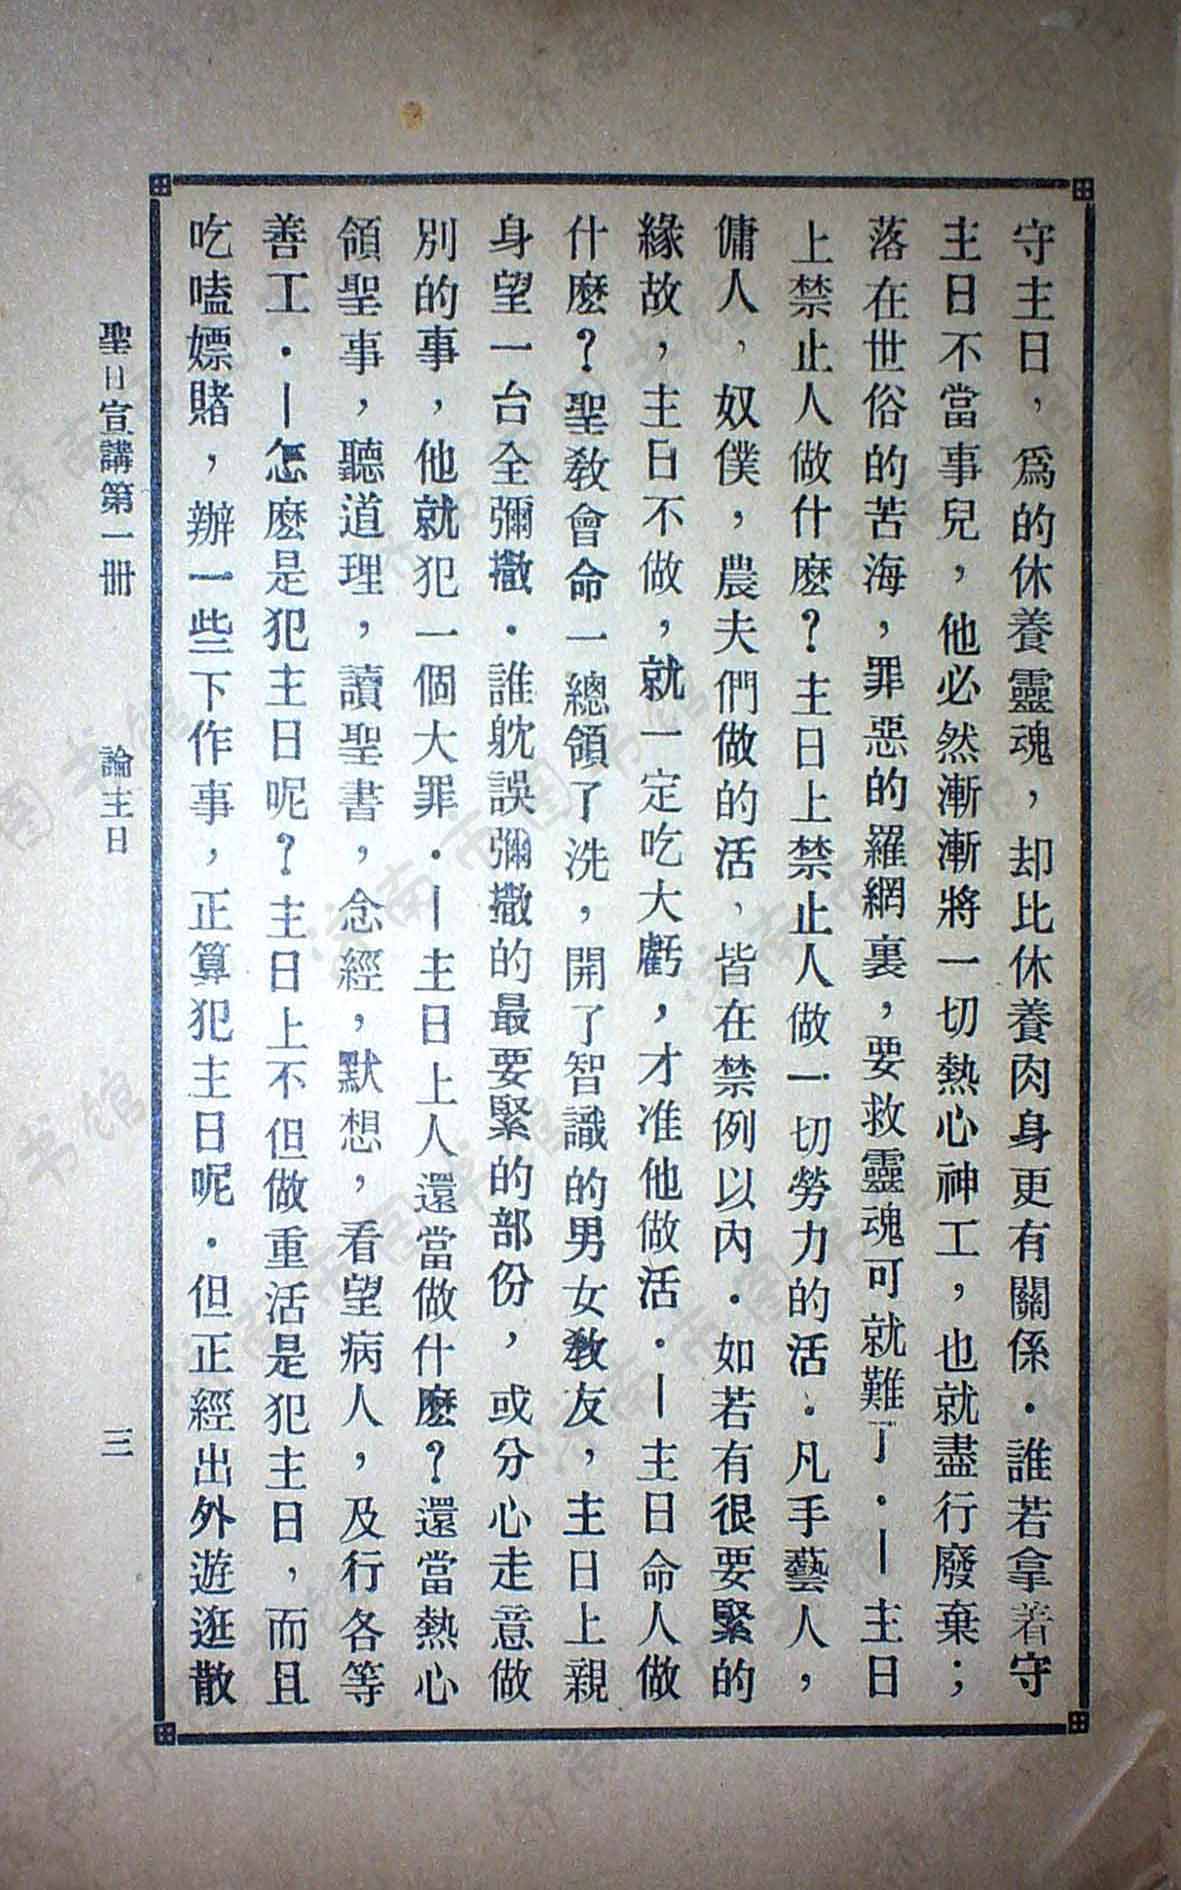 守主日，爲的休養靈魂，却比休養肉身更有關係．誰若拿着守
主日不當事兒，他必然漸漸將一切熱心神工，也就盡行廢棄；
落在世俗的苦海，罪惡的羅網裏，要救靈魂可就難了．—主日
上禁止人做什麽？主日上禁止人做一切勞力的活．凡手藝人，
傭人，奴僕，農夫們做的活，皆在禁例以內．如若有很要緊的
緣故，主日不做，就一定吃大虧，才准他做活．—主日命人做
什麽？聖教會命一總領了洗，開了智識的男女教友，主日上親
身望一台全彌撒．誰躭誤彌撒的最要緊的部份，或分心走意做
別的事，他就犯一個大罪．—主日上人還當做什麽？還當熱心
領聖事，聽道理，讀聖書，念經，默想，看望病人，及行各等
善工．—怎麽是犯主日呢？主日上不但做重活是犯主日，而且
吃嗑嫖賭，辦一些下作事，正算犯主日呢．但正經出外遊逛散
聖日宣講第一冊　論主日　三
济南市图书馆